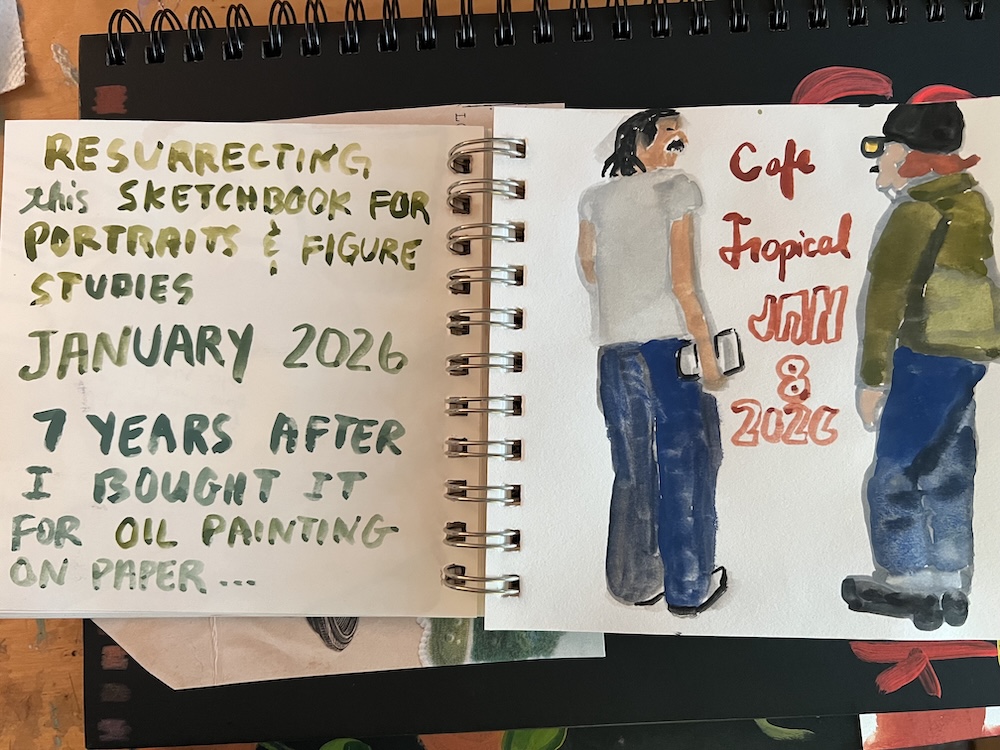 RESURRECTING
this SKETCHBOOK FOR
PORTRAITS & FIGURE
STUDIES
JANUARY 2026
7 YEARS AFTER
I BOUGHT IT
FOR OIL PAINTING
ON PAPER...
Cafe
Tropical
JAN
8
2026